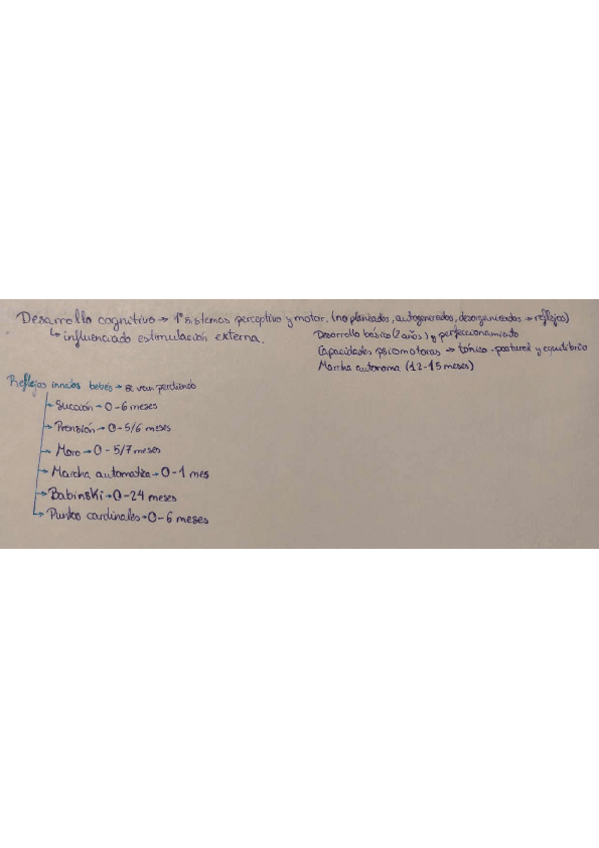 Desarrollo cognitivo → 1º sistemas perceptivo y motor. (no planeados, autogenerados, desorganizados → reflejos)
↳ influenciado estimulación externa.
Desarrollo básico (2 años) y perfeccionamiento
Capacidades psicomotoras → tónico-postural y equilibrio
Marcha autónoma (12-15 meses)
Reflejos innatos bebés → se van perdiendo
→ Succión → 0-6 meses
→ Prensión → 0-5/6 meses
→ Moro → 0-5/7 meses
→ Marcha automática → 0-1 mes
→ Babinski → 0-24 meses
→ Puntos cardinales → 0-6 meses